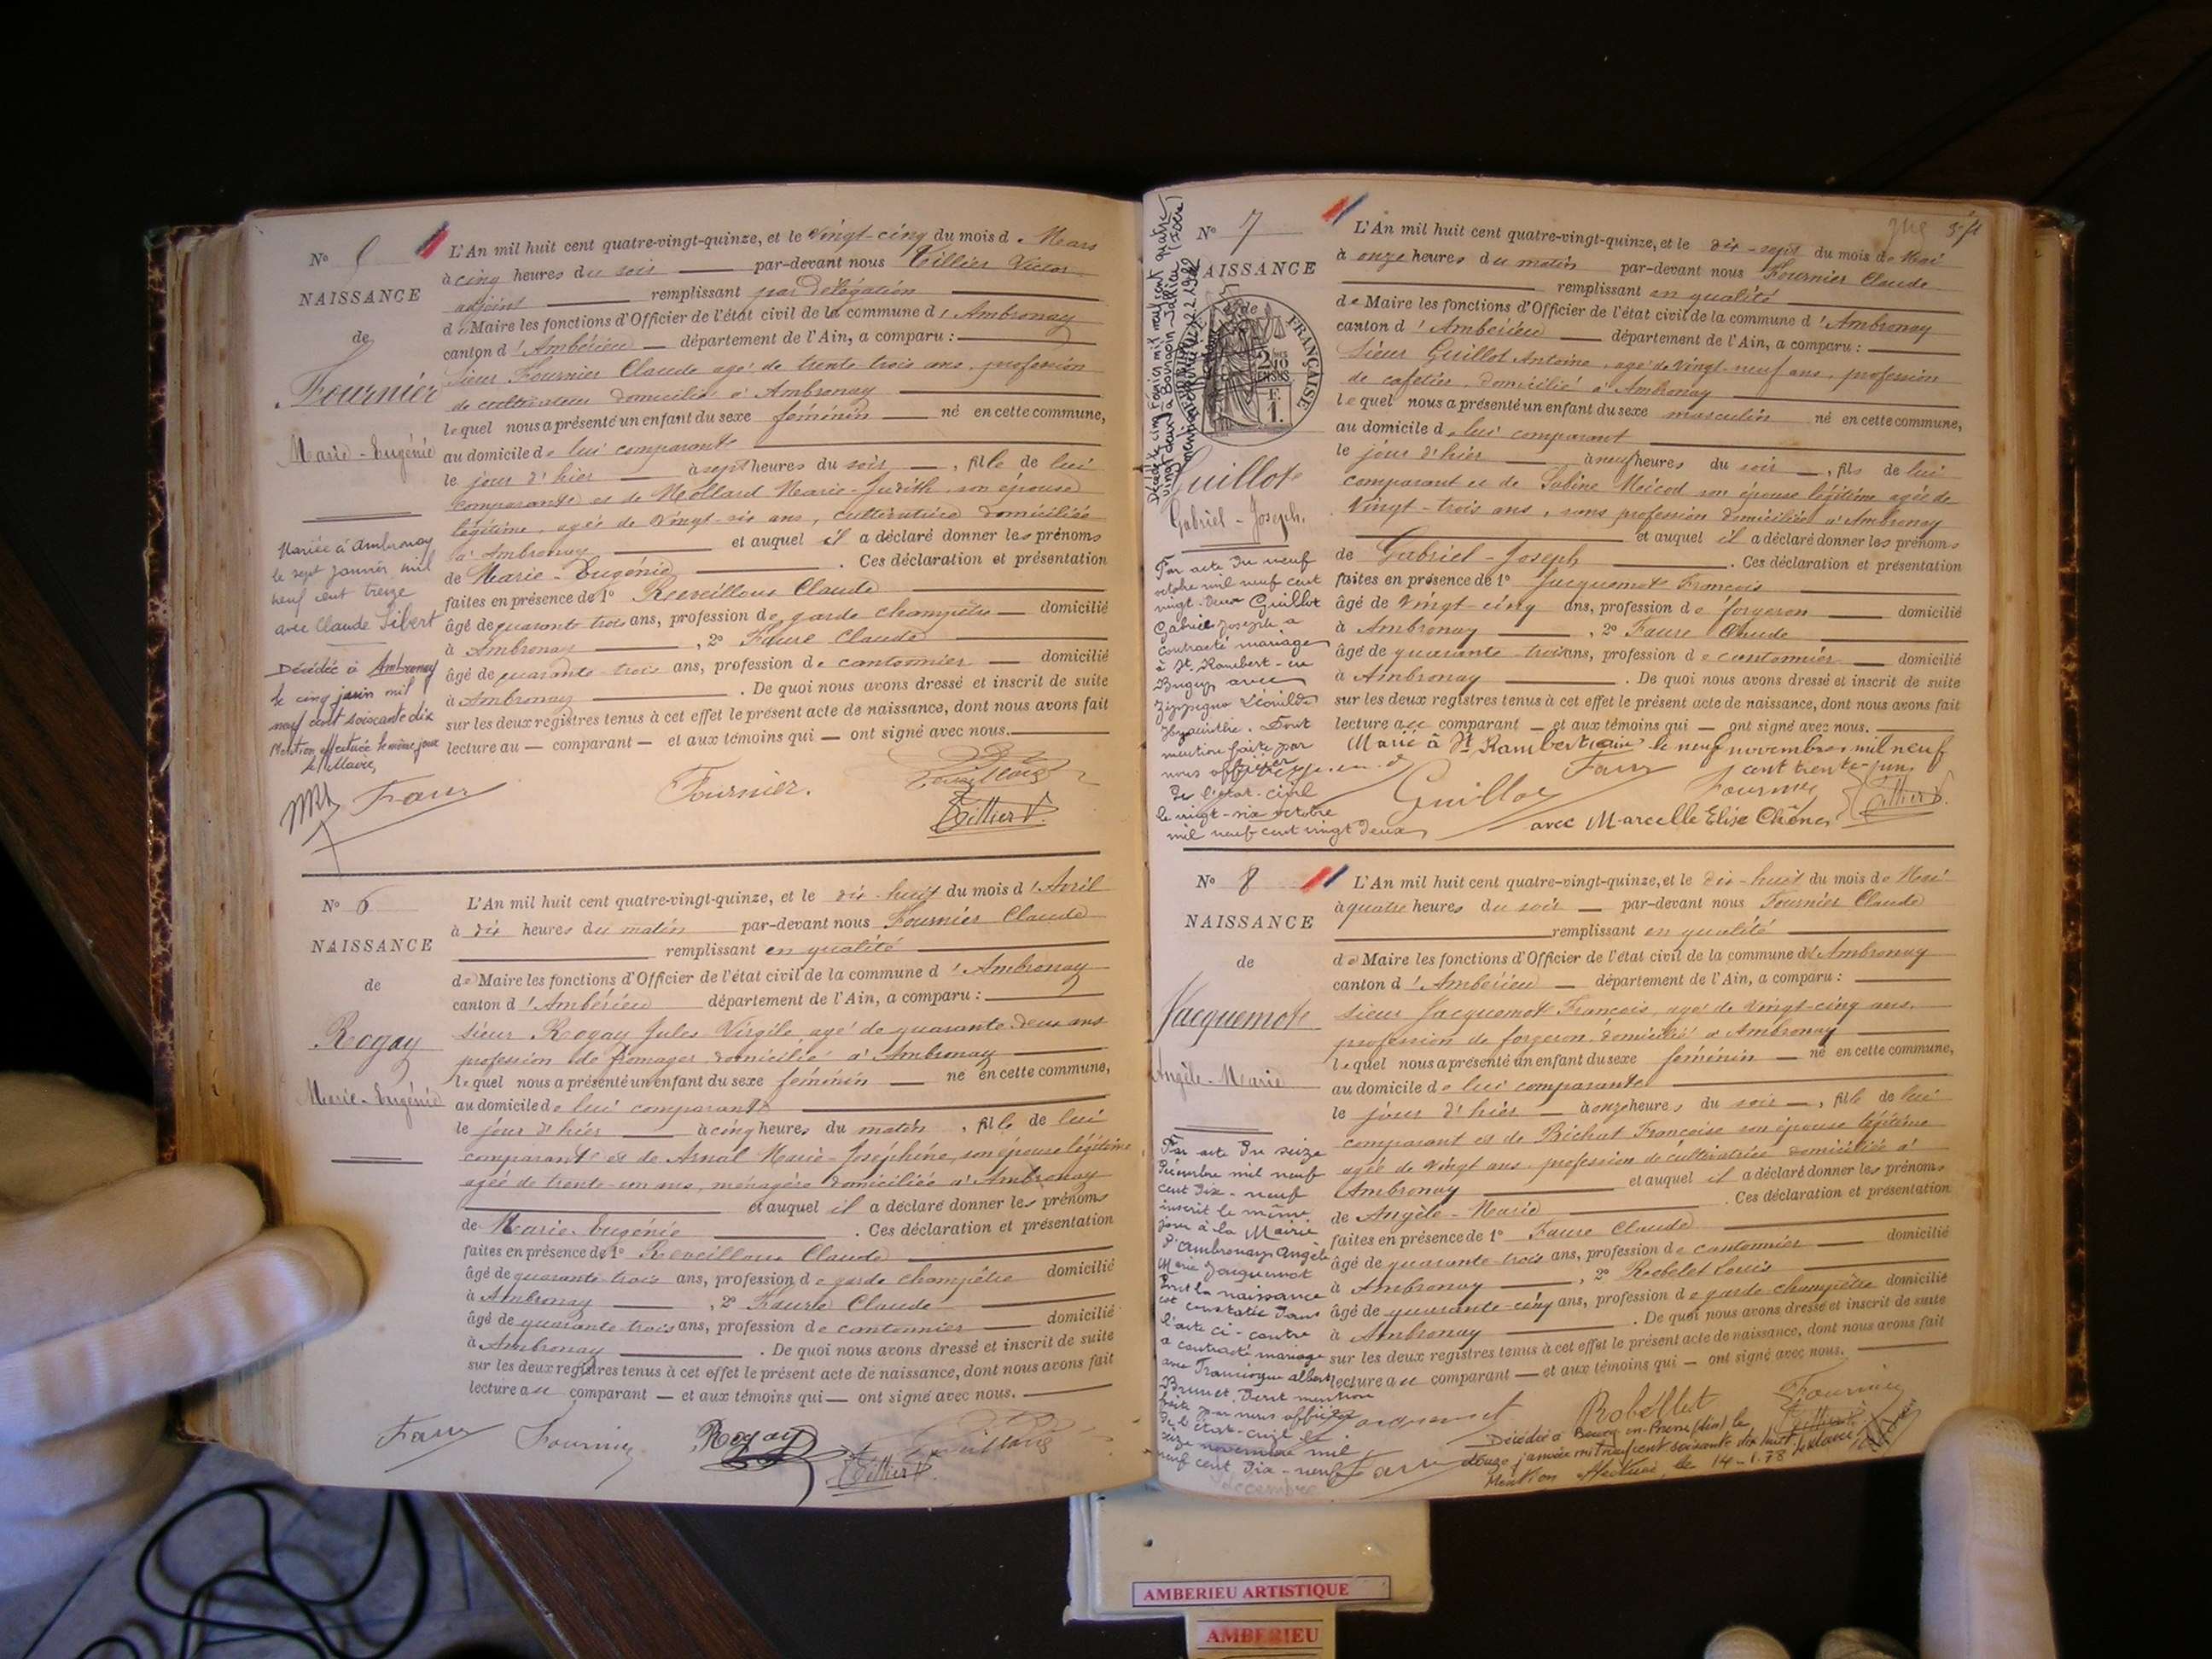 N° 5
NAISSANCE
de
Fournier
Marie-Eugénie
Mariée à Ambronay
le sept janvier mil
neuf cent treize
avec Claude Sibert
Décédée à Ambronay
le cinq juin mil
neuf cent soixante dix
Mention effectuée le même jour
Le Maire,
L'An mil huit cent quatre-vingt-quinze, et le vingt-cinq du mois de Mars
à cinq heures du soir par-devant nous Tillier Victor
adjoint remplissant par délégation
de Maire les fonctions d'Officier de l'état civil de la commune d'Ambronay
canton d'Ambérieu département de l'Ain, a comparu :
Sieur Fournier Claude agé de trente trois ans, profession
de cultivateur domicilié à Ambronay
lequel nous a présenté un enfant du sexe féminin né en cette commune,
au domicile de lui comparant
le jour d'hier à sept heures du soir, fille de lui
comparant et de Mollard Marie-Judith, son épouse
légitime, agée de vingt-six ans, cultivatrice domiciliée
à Ambronay et auquel il a déclaré donner les prénoms
de Marie-Eugénie. Ces déclaration et présentation
faites en présence de 1° Reveilloux Claude
âgé de quarante trois ans, profession de garde champêtre domicilié
à Ambronay, 2° Faure Claude
âgé de quarante-trois ans, profession de cantonnier domicilié
à Ambronay. De quoi nous avons dressé et inscrit de suite
sur les deux registres tenus à cet effet le présent acte de naissance, dont nous avons fait
lecture au comparant et aux témoins qui ont signé avec nous.
Faure Fournier. Reveilloux
Tillier V.
N° 6
NAISSANCE
de
Rogay
Marie-Eugénie
L'An mil huit cent quatre-vingt-quinze, et le dix-huit du mois d'Avril
à dix heures du matin par-devant nous Fournier Claude
remplissant en qualité
de Maire les fonctions d'Officier de l'état civil de la commune d'Ambronay
canton d'Ambérieu département de l'Ain, a comparu :
Sieur Rogay Jules Virgile agé de quarante deux ans
profession de fromager domicilié à Ambronay
lequel nous a présenté un enfant du sexe féminin né en cette commune,
au domicile de lui comparant
le jour d'hier à cinq heures du matin, fille de lui
comparant et de Arnal Marie-Joséphine, son épouse légitime
agée de trente-un ans, ménagère domiciliée à Ambronay
et auquel il a déclaré donner les prénoms
de Marie-Eugénie. Ces déclaration et présentation
faites en présence de 1° Reveilloux Claude
âgé de quarante-trois ans, profession de garde champêtre domicilié
à Ambronay, 2° Faure Claude
âgé de quarante trois ans, profession de cantonnier domicilié
à Ambronay. De quoi nous avons dressé et inscrit de suite
sur les deux registres tenus à cet effet le présent acte de naissance, dont nous avons fait
lecture au comparant et aux témoins qui ont signé avec nous.
Faure Fournier Rogay Reveilloux
Tillier V.
N° 7
NAISSANCE
de
FRANÇAISE
Guillot
Gabriel-Joseph.
Par acte du neuf
octobre mil neuf cent
vingt-deux Guillot
Gabriel Joseph a
contracté mariage
à St. Rambert-en
Bugey avec
Léonilde
Hyacinthe. Dont
mention faite par
nous officier
de l'état-civil
le vingt-six octobre
mil neuf cent vingt deux
L'An mil huit cent quatre-vingt-quinze, et le dix-sept du mois de Mai
à onze heures du matin par-devant nous Fournier Claude
remplissant en qualité
de Maire les fonctions d'Officier de l'état civil de la commune d'Ambronay
canton d'Ambérieu département de l'Ain, a comparu :
Sieur Guillot Antoine, agé de vingt-neuf ans, profession
de cafetier, domicilié à Ambronay
lequel nous a présenté un enfant du sexe masculin né en cette commune,
au domicile de lui comparant
le jour d'hier à neuf heures du soir, fils de lui
comparant et de Sabine Moicod son épouse légitime agée de
vingt-trois ans, sans profession domiciliée à Ambronay
et auquel il a déclaré donner les prénoms
de Gabriel-Joseph. Ces déclaration et présentation
faites en présence de 1° Jacquemot François
âgé de vingt-cinq ans, profession de forgeron domicilié
à Ambronay, 2° Faure Claude
âgé de quarante-trois ans, profession de cantonnier domicilié
à Ambronay. De quoi nous avons dressé et inscrit de suite
sur les deux registres tenus à cet effet le présent acte de naissance, dont nous avons fait
lecture au comparant et aux témoins qui ont signé avec nous.
Marié à St Rambert (ain) le neuf novembre mil neuf
cent trente-un
avec Marcelle Elise Chêne
Guillot Faure Fournier Tillier V.
N° 8
NAISSANCE
de
Jacquemot
Angèle-Marie
Par acte du seize
décembre mil neuf
cent dix-neuf
inscrit le même
jour à la Mairie
d'Ambronay Angèle
Marie Jacquemot
dont la naissance
est constatée dans
l'acte ci-contre
a contracté mariage
avec Francisque albert
Brunet. Dont mention
faite par nous officier
de l'état-civil le
seize novembre mil
neuf cent dix-neuf
décembre
L'An mil huit cent quatre-vingt-quinze, et le dix-huit du mois de Mai
à quatre heures du soir par-devant nous Fournier Claude
remplissant en qualité
de Maire les fonctions d'Officier de l'état civil de la commune d'Ambronay
canton d'Ambérieu département de l'Ain, a comparu :
Sieur Jacquemot François, agé de vingt-cinq ans.
profession de forgeron domicilié à Ambronay
lequel nous a présenté un enfant du sexe féminin né en cette commune,
au domicile de lui comparant
le jour d'hier à onze heures du soir, fille de lui
comparant et de Bichat Françoise son épouse légitime
agée de vingt ans, profession de cultivatrice domiciliée à
Ambronay et auquel il a déclaré donner les prénoms
de Angèle-Marie. Ces déclaration et présentation
faites en présence de 1° Faure Claude
âgé de quarante trois ans, profession de cantonnier domicilié
à Ambronay, 2° Robelet Louis
âgé de quarante-cinq ans, profession de garde-champêtre domicilié
à Ambronay. De quoi nous avons dressé et inscrit de suite
sur les deux registres tenus à cet effet le présent acte de naissance, dont nous avons fait
lecture au comparant et aux témoins qui ont signé avec nous.
Jacquemot Robellet Fournier
Faure Tillier V.
Décédée à Bourg-en-Bresse (Ain) le
douze janvier mil neuf cent soixante dix huit le Maire
Mention effectuée, le 14-1.78
AMBERIEU ARTISTIQUE
AMBERIEU